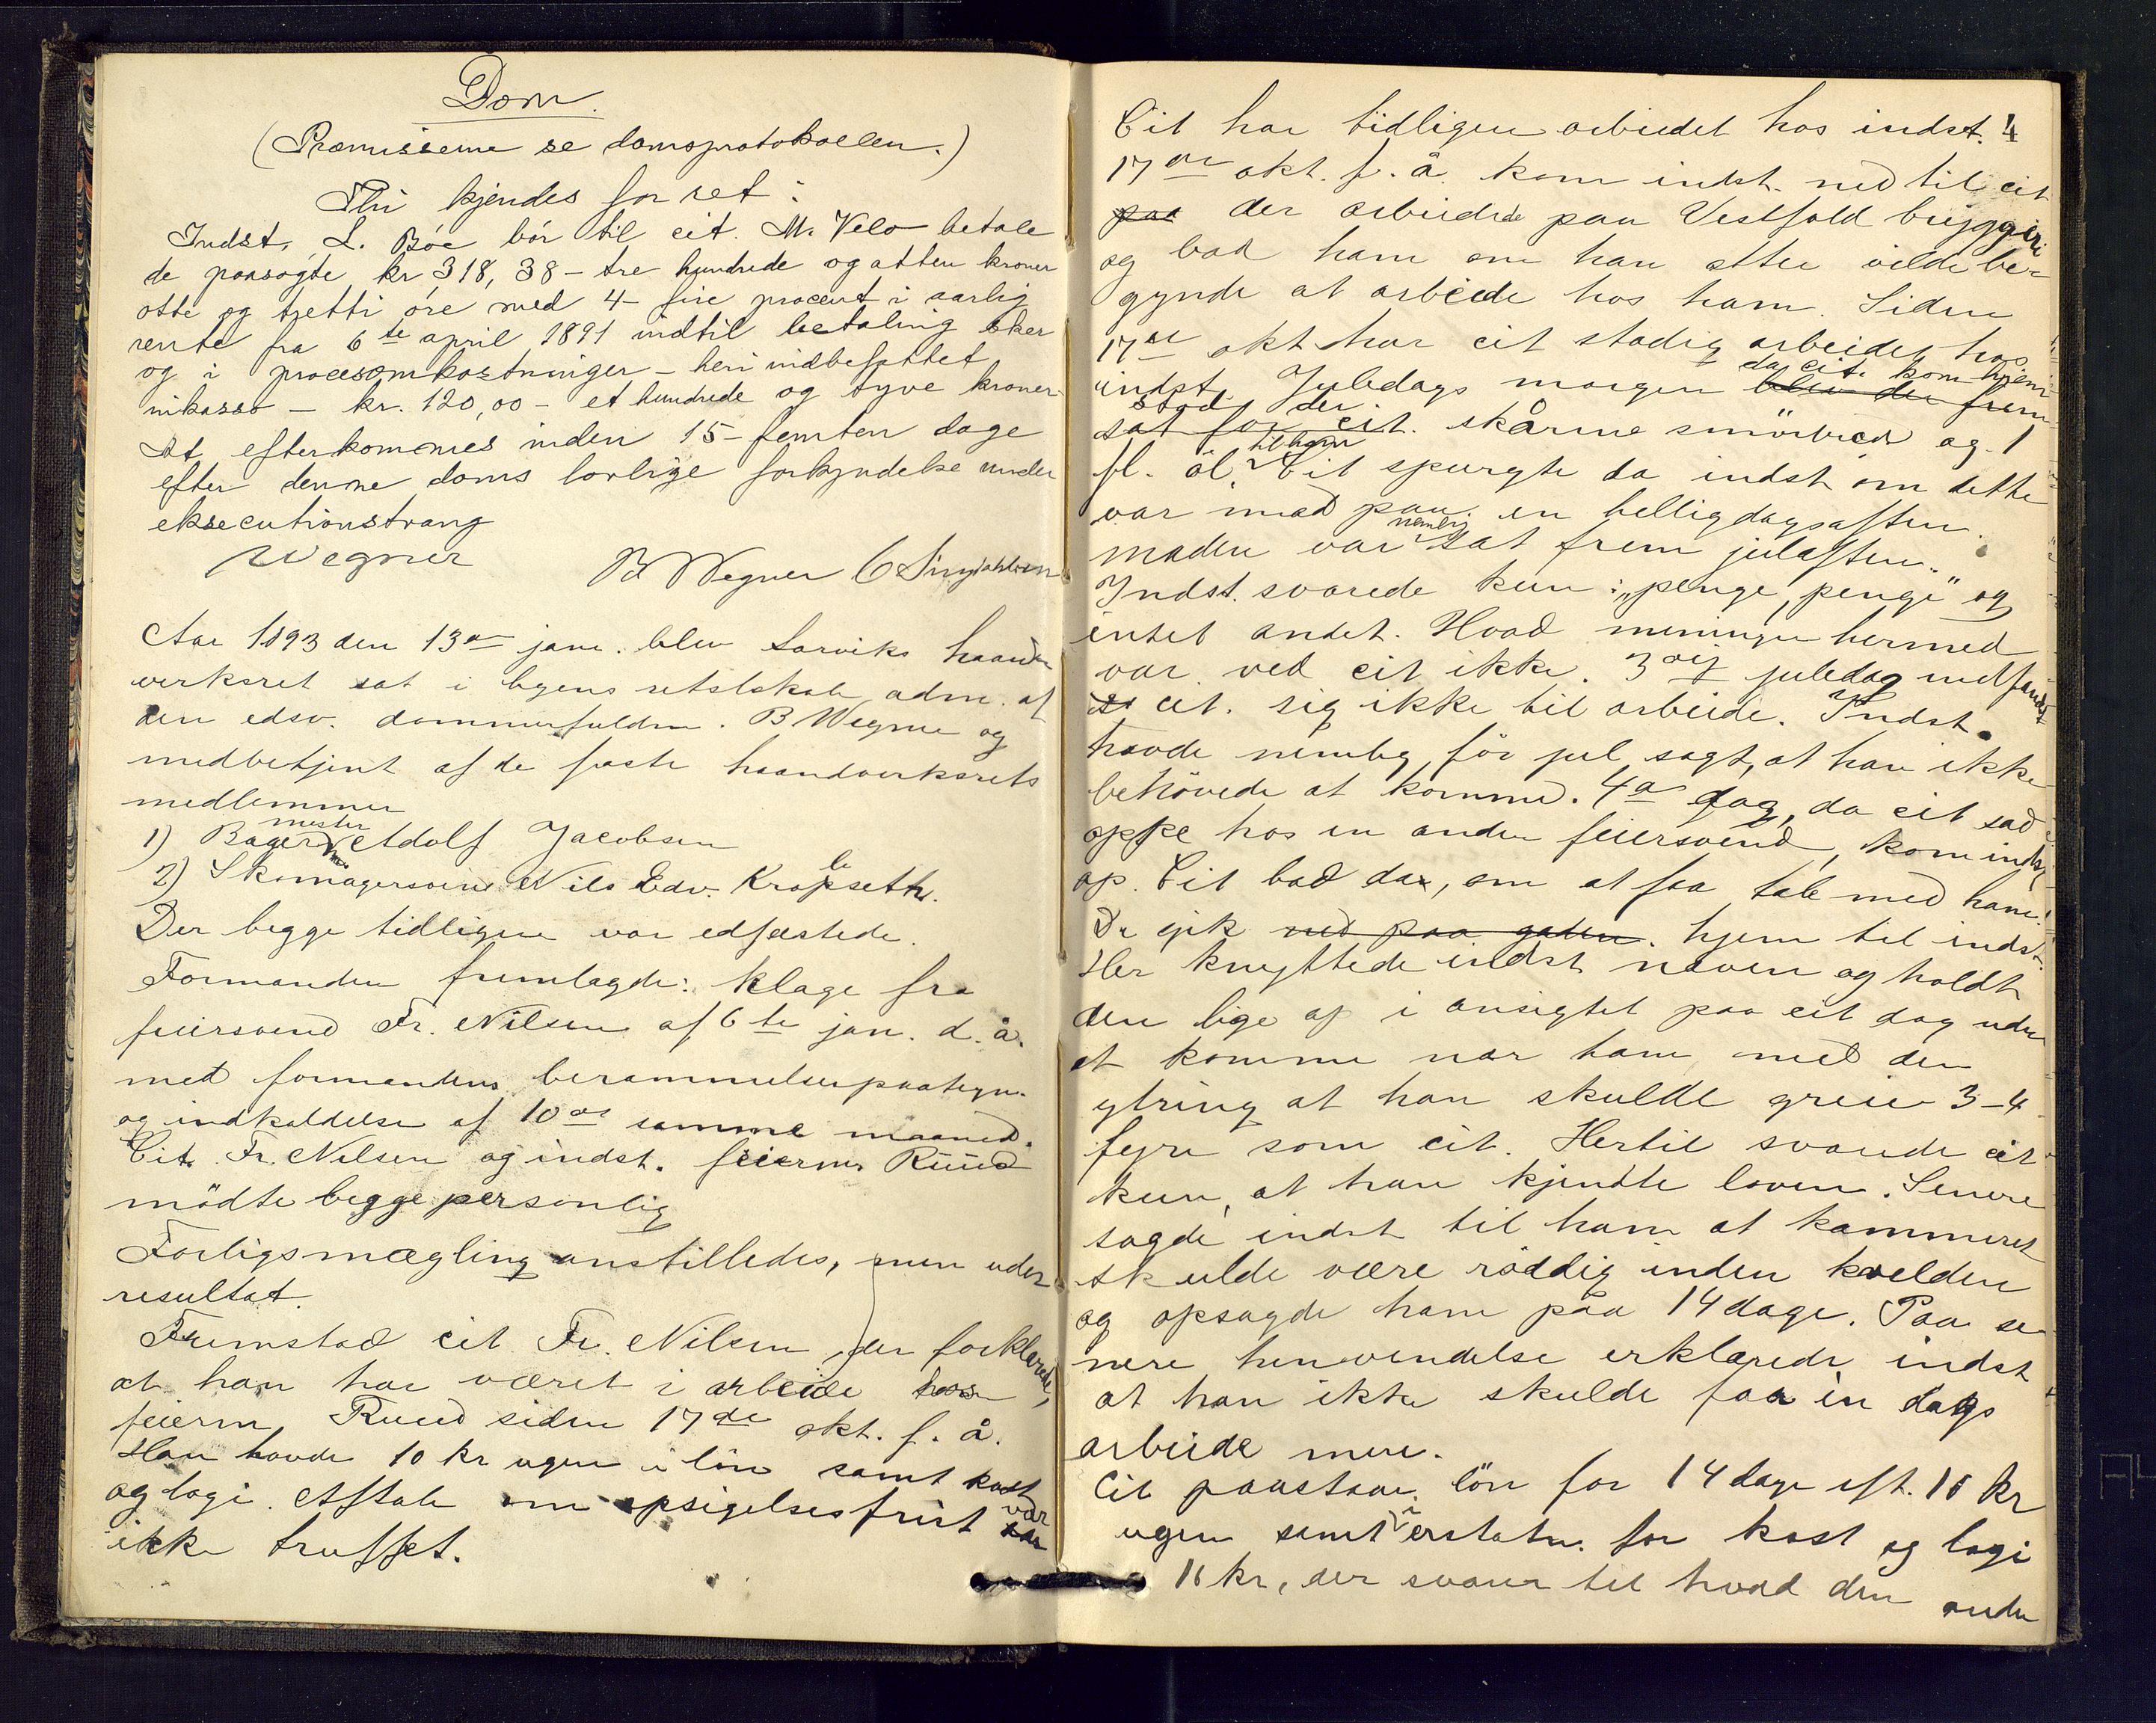 Dom.
(Præmisserne se domsprotokollen.)
Thi kjendes for ret:
Indst. L. Bøe bör til cit. M. Velo betale
de paasøgte kr 318,38 - tre hundrede og atten kroner
otte og tretti öre med 4 - fire procent i aarlig
rente fra 6te april 1891 indtil betaling sker
og i procesomkostninger - heri indbefattet
inkasso - kr. 120,00 - et hundrede og tyve kroner
At efterkommes inden 15 - femten dage
efter denne doms lovlige forkyndelse under
eksecutionstvang
Wegner B Wegner C
Aar 1893 den 13de janr. blev Larviks haand-
verksret sat i byens retslokale adm. af
den edsv. dommerfuldm. B Wegner og
medbetjent af de faste haandverksrets
medlemmer
1) Bagermester Adolf Jacobsen
2) Skomagersvend Nils Edv.
Der begge tidligere var edfæstede.
Formanden fremlagde: klage fra
feiersvend Fr. Nilsen af 6te jan. d. å.
med formandens berammelsespaategn.
og indkaldelse af 10de samme maaned.
Cit. Fr. Nilsen og indst. feierm. Ruud
mödte begge personlig
Forligsmægling anstilledes, men uden
resultat.
Fremstod cit Fr. Nilsen, der forklarede,
at han har været i arbeide hos
feierm. Ruud siden 17de okt. f. å.
Han havde 10 kr ugen i lön samt kost
og logi. Aftale om opsigelsesfrist var
ikke truffet.
4
Cit har tidligere arbeidet hos indst.
17de okt. f. å. kom indst. ned til cit
paa der arbeidede paa Vestfold bryggeri
og bad ham om han atter vilde be-
gynde at arbeide hos ham. Siden
17de okt har cit stadig arbeidet hos
da cit. kom hjem
indst. Juledags morgen blev der frem
stod der
sat for cit. skårne smörbröd og 1
til ham
fl. öl. Cit spurgte da indst om dette
var mad paa en helligdagsaften.
nemlig
Maden var sat frem julaften.
Indst. svarede kun: "penge, penge" og
intet andet. Hvad meningen hermed
var ved cit ikke. 3die juledag indfandt
cit. sig ikke til arbeide. Indst.
havde nemlig för jul sagt, at han ikke
behövede at komme. 4de dag, da cit sad
oppe hos en anden feiersvend, kom indst.
op. Cit bad da, om at faa tale med ham.
De gik ned paa gaden. hjem til indst.
Her knyttede indst næven og holdt
den lige op i ansigtet paa cit dog uden
at komme nær ham med den
ytring at han skulde greie 3-4
fyre som cit. Hertil svarede cit
kun, at han kjendte loven. Senere
sagde indst til ham at kammeret
skulde være röddig inden kvelden
og opsagde ham paa 14 dage. Paa se-
nere henvendelse erklærede indst
at han ikke skulde faa en dags
arbeide mere.
Cit paastaar lön for 14 dage eft. 10 kr
ugen samt i erstatn. for kost og logi
16 kr, der svarer til hvad den anden